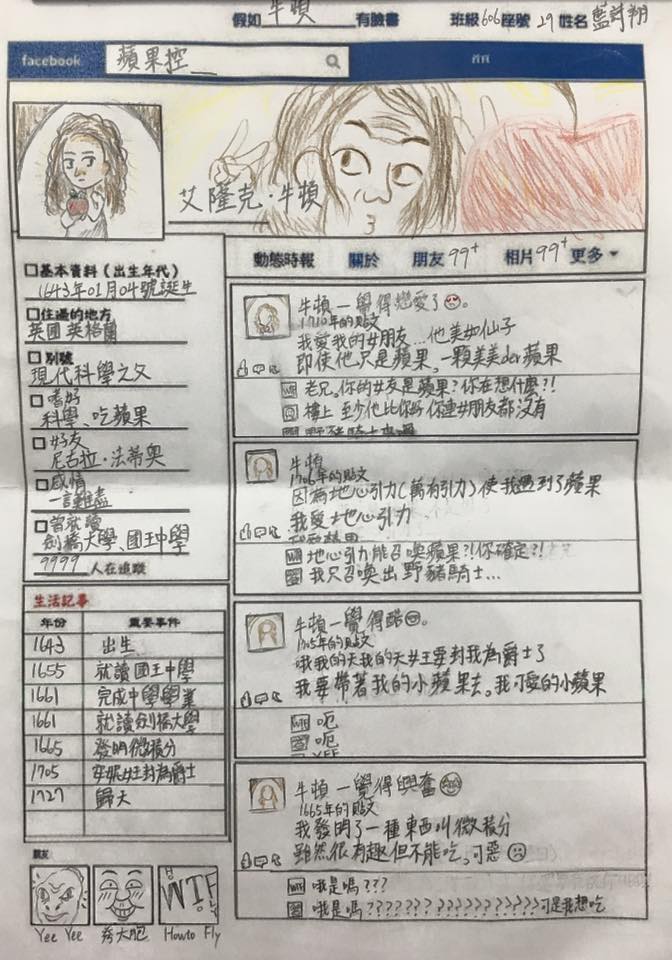 假如 牛頓 有臉書 班級606座號 29 姓名 藍詩翔
facebook 蘋果控 首頁
艾隆克·牛頓
動態時報 關於 朋友99+ 相片99+ 更多
基本資料(出生年代)
1643年01月04號誕生
住過的地方
英國 英格蘭
別號
現代科學之父
嗜好
科學、吃蘋果
好友
尼古拉·法蒂奧
感情
一言難盡
曾就讀
劍橋大學、國王中學
9999 人在追蹤
生活記事
年份 重要事件
1643 出生
1655 就讀國王中學
1661 完成中學學業
1661 就讀劍橋大學
1665 發明微積分
1705 安妮女王封為爵士
1727 歸天
朋友
WTF
Yee Yee 秀大肥 How to Fly
牛頓一覺得戀愛了
1710年的貼文
我愛我的女朋友...他美如仙子
即使他只是蘋果,一顆美美der蘋果
老兄,你的女友是蘋果?你在想什麼?!
樓上 至少他比你好 你連女朋友都沒有
牛頓
1706年的貼文
因為地心引力(萬有引力)使我遇到了蘋果
我愛地心引力
地心引力能召喚蘋果?!你確定?!
我只召喚出野豬騎士...
牛頓一覺得酷
1705年的貼文
哦我的天我的天女王要封我為爵士了
我要帶著我的小蘋果去。我可愛的小蘋果
呃
呃
YEE
牛頓一覺得興奮
1665年的貼文
我發明了一種東西叫微積分
雖然很有趣但不能吃,可惡
哦是嗎???
哦是嗎????????????????可是我想吃